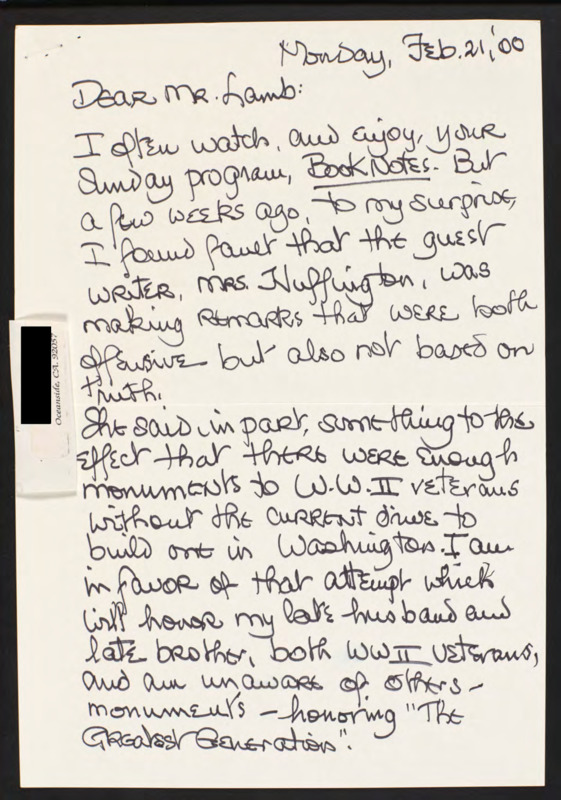 Monday, Feb. 21, '00
Dear Mr. Lamb:
I often watch, and enjoy, your
Sunday program, BookNotes. But
a few weeks ago, to my surprise,
I found faucet that the guest
writer, Mrs. Huffington, was
making remarks that were both
offensive but also not based on
truth.
She said, in part, something to the
effect that there were enough
monuments to W.W. II veterans
without the current drive to
build one in Washington. I am
in favor of that attempt which
will honor my late husband and
late brother, both WW II veterans,
and am unaware of others -
monuments - honoring "The
Greatest Generation".
Oceanside, CA. 92057